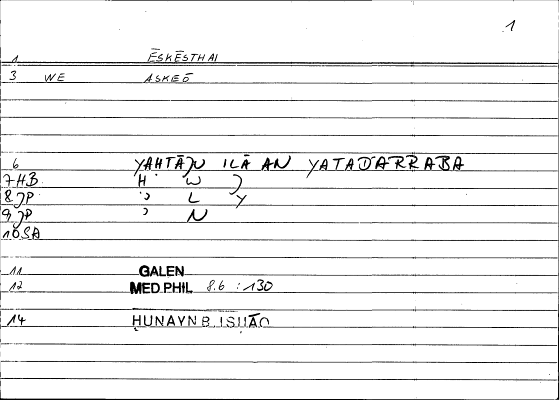 1
1 ĒSKĒSTHAI
3 WE ASKEŌ
6 YAHTĀǦU ILĀ AN YATADARRABA
7 HB Ḥ W Ǧ
8 JP ʾ L Y
9 JP ʾ N
10 SA
11 GALEN
12 MED.PHIL 8.6 :130
14 ḤUNAYN B. ISḤĀQ